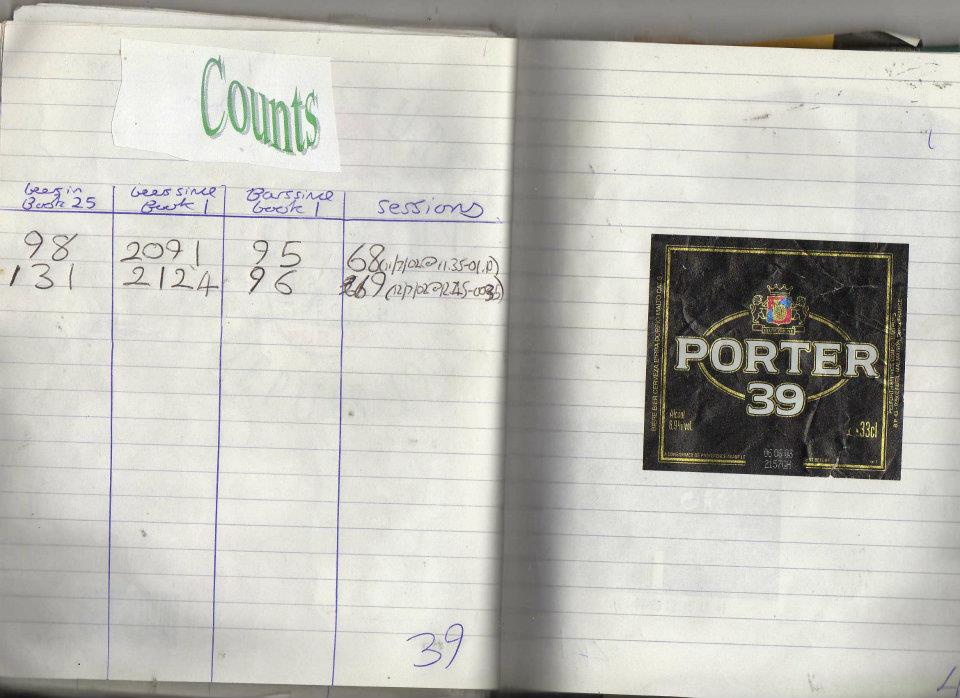 Counts
beers in beers since Bars since sessions
Book 25 Book 1 book 1
98 2091 95 68 (11/7/02@11.35-01.10)
131 2124 96 69 (12/7/02@12.45-0035)
39
PORTER
39
Alcool
6.9% vol.
33cl
06 06 03